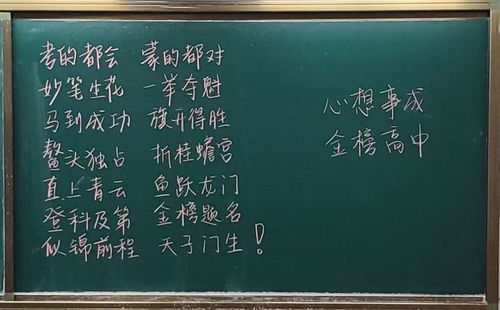 考的都会 蒙的都对
妙笔生花 一举夺魁
马到成功 旗开得胜
鳌头独占 折桂蟾宫
直上青云 鱼跃龙门
登科及第 金榜题名
似锦前程 天子门生!
心想事成
金榜高中